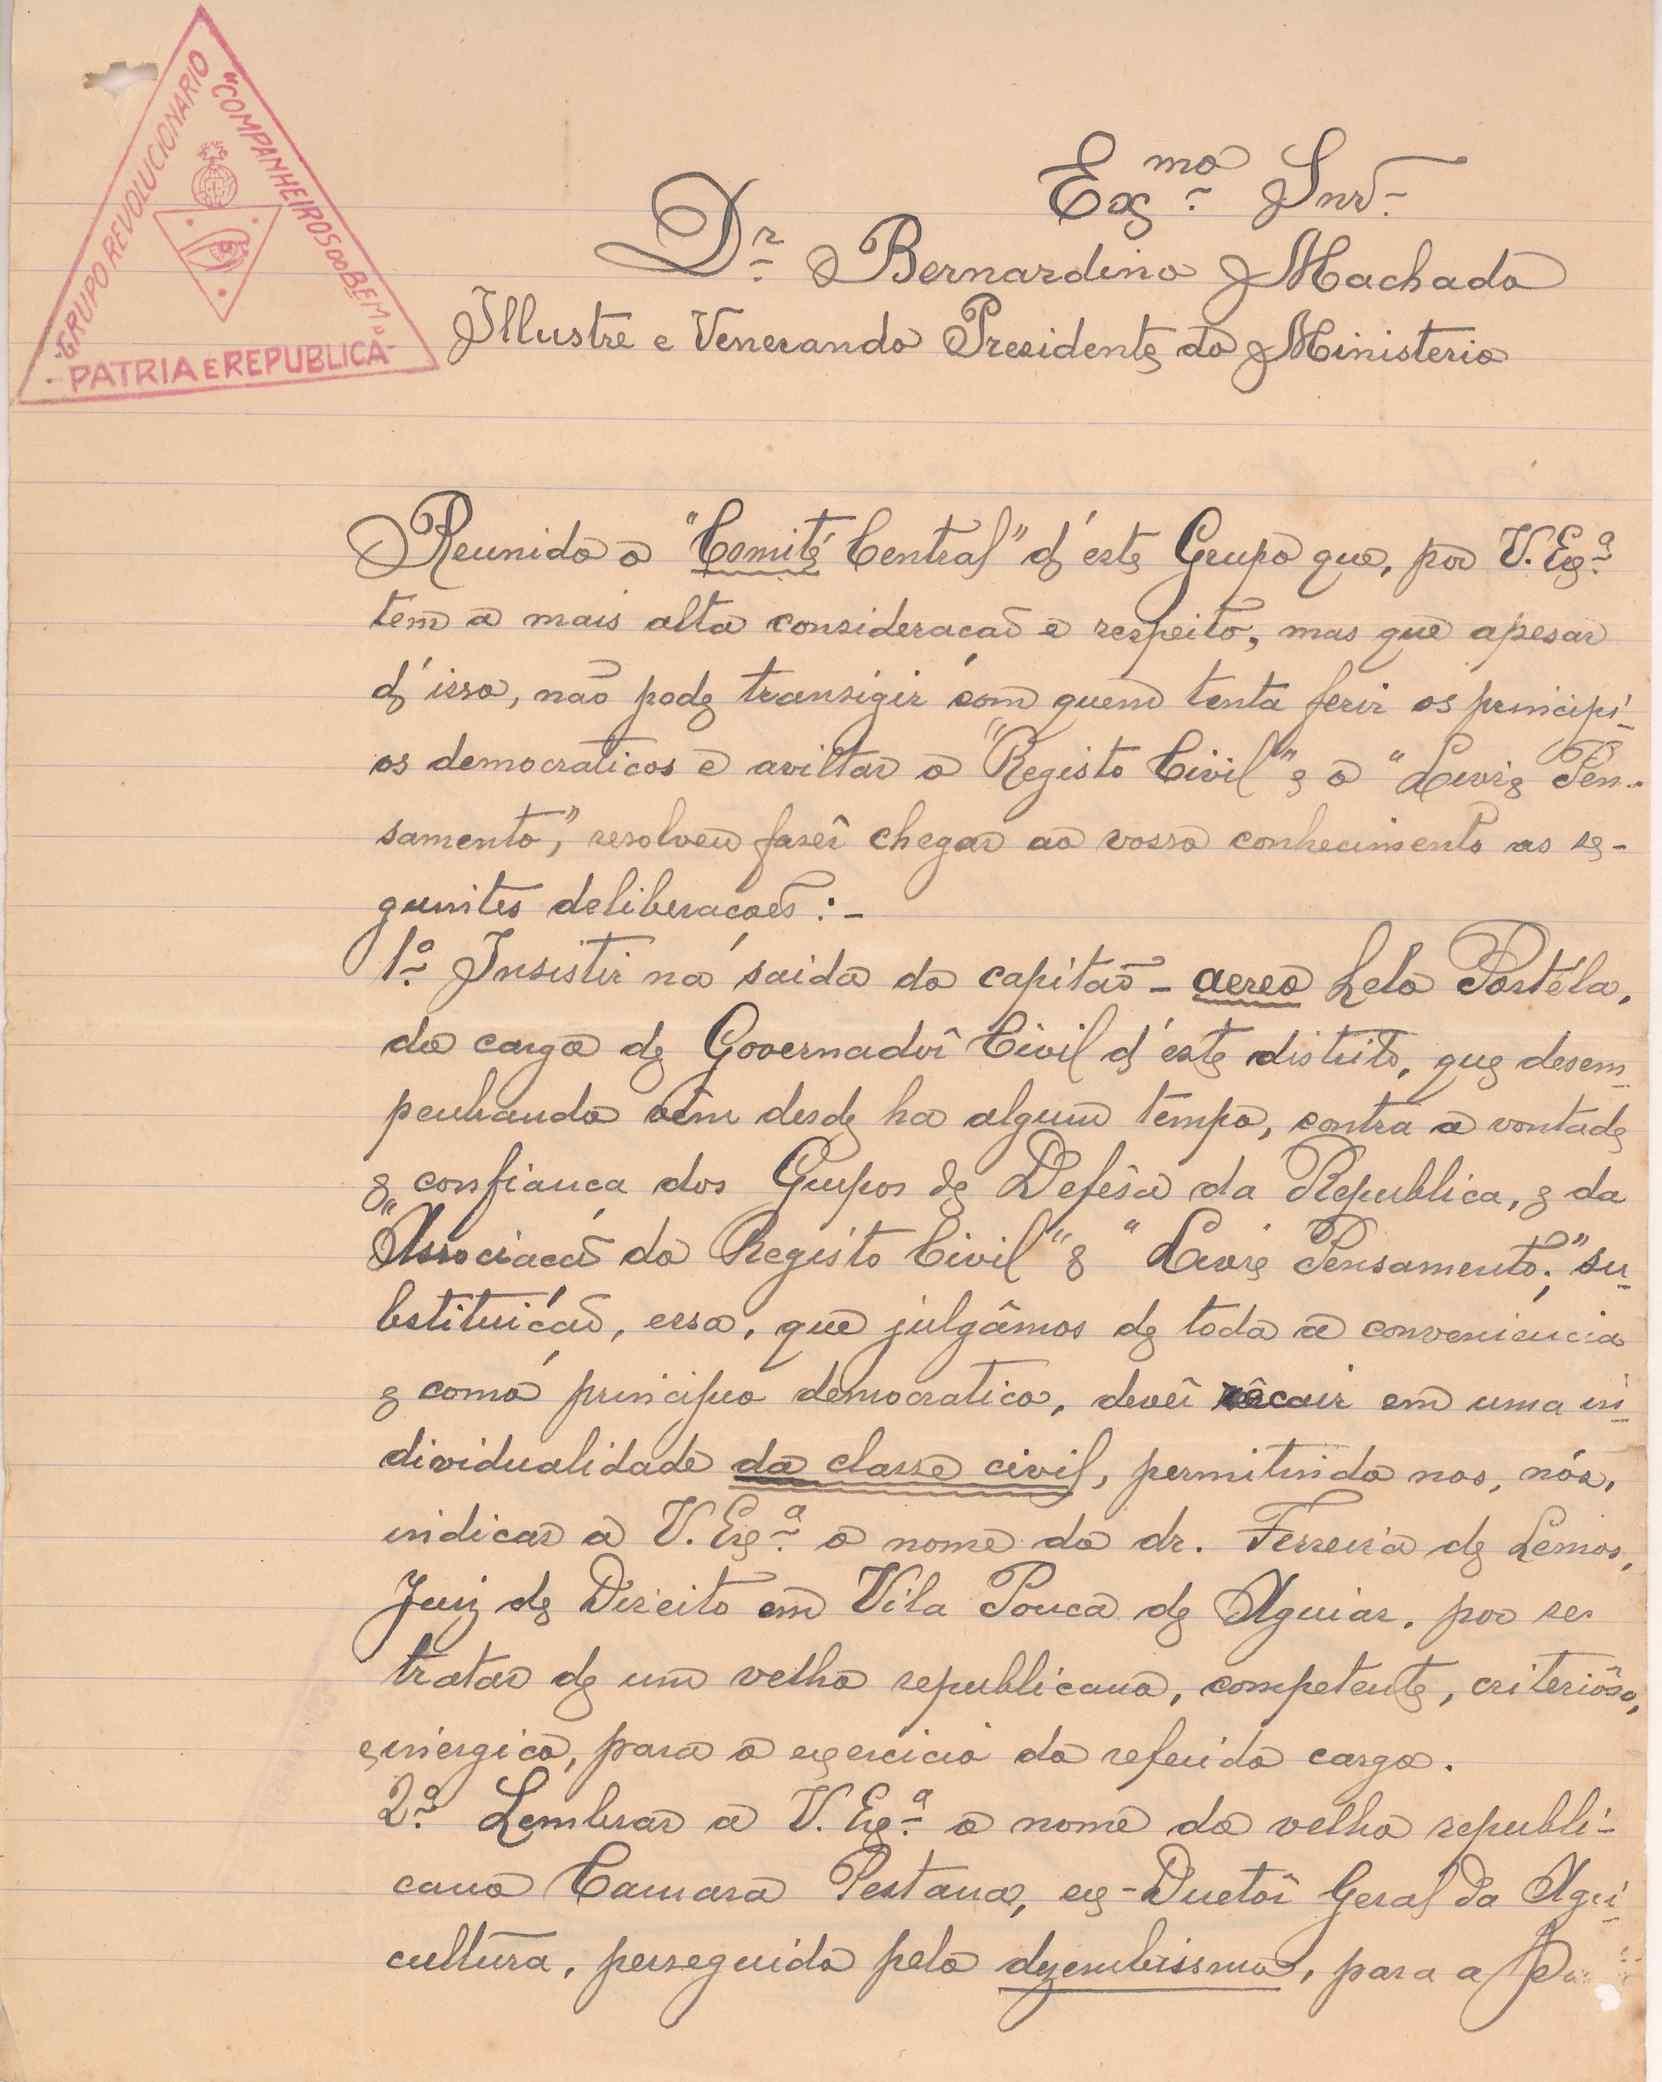 GRUPO REVOLUCIONARIO
"COMPANHEIROS DO BEM"
PATRIA E REPUBLICA
Exmo. Snr.
Dr. Bernardino Machado
Illustre e Venerando Presidente do Ministerio
Reunido o "Comité Central" d'este Grupo que, por V. Exa.
tem a mais alta consideracão e respeito, mas que apesar
d'isso, não pode transigir com quem tenta ferir os principi-
os democraticos e aviltar o "Registo Civil" e o "Livre Pen-
samento", resolveu fazer chegar ao vosso conhecimento as se-
guintes deliberações:-
1ª. Insistir na saida do capitão-aereo Lelo Portéla,
do cargo de Governador Civil d'este distrito, que desem-
penhando vem desde ha algum tempo, contra a vontade
e confiança dos Grupos de Defêsa da Republica, e da
"Associação do Registo Civil" e "Livre Pensamento;" su-
bstituição, essa, que julgâmos de toda a conveniencia
e como principio democratico, devêr recair em uma in-
dividualidade da classe civil, permitindo nos, nós,
indicar a V. Exa. o nome do dr. Ferreira de Lemos,
Juiz de Direito em Vila Pouca de Aguiar, por se
tratar de um velho republicano, competente, criteriôso,
enérgico, para o exercicio do referido cargo.
2ª. Lembrar a V. Exa. o nome do velho republi-
cano Camara Pestana, ex-Diretôr Geral da Agri-
cultura, perseguido pelo dezembrismo, para a